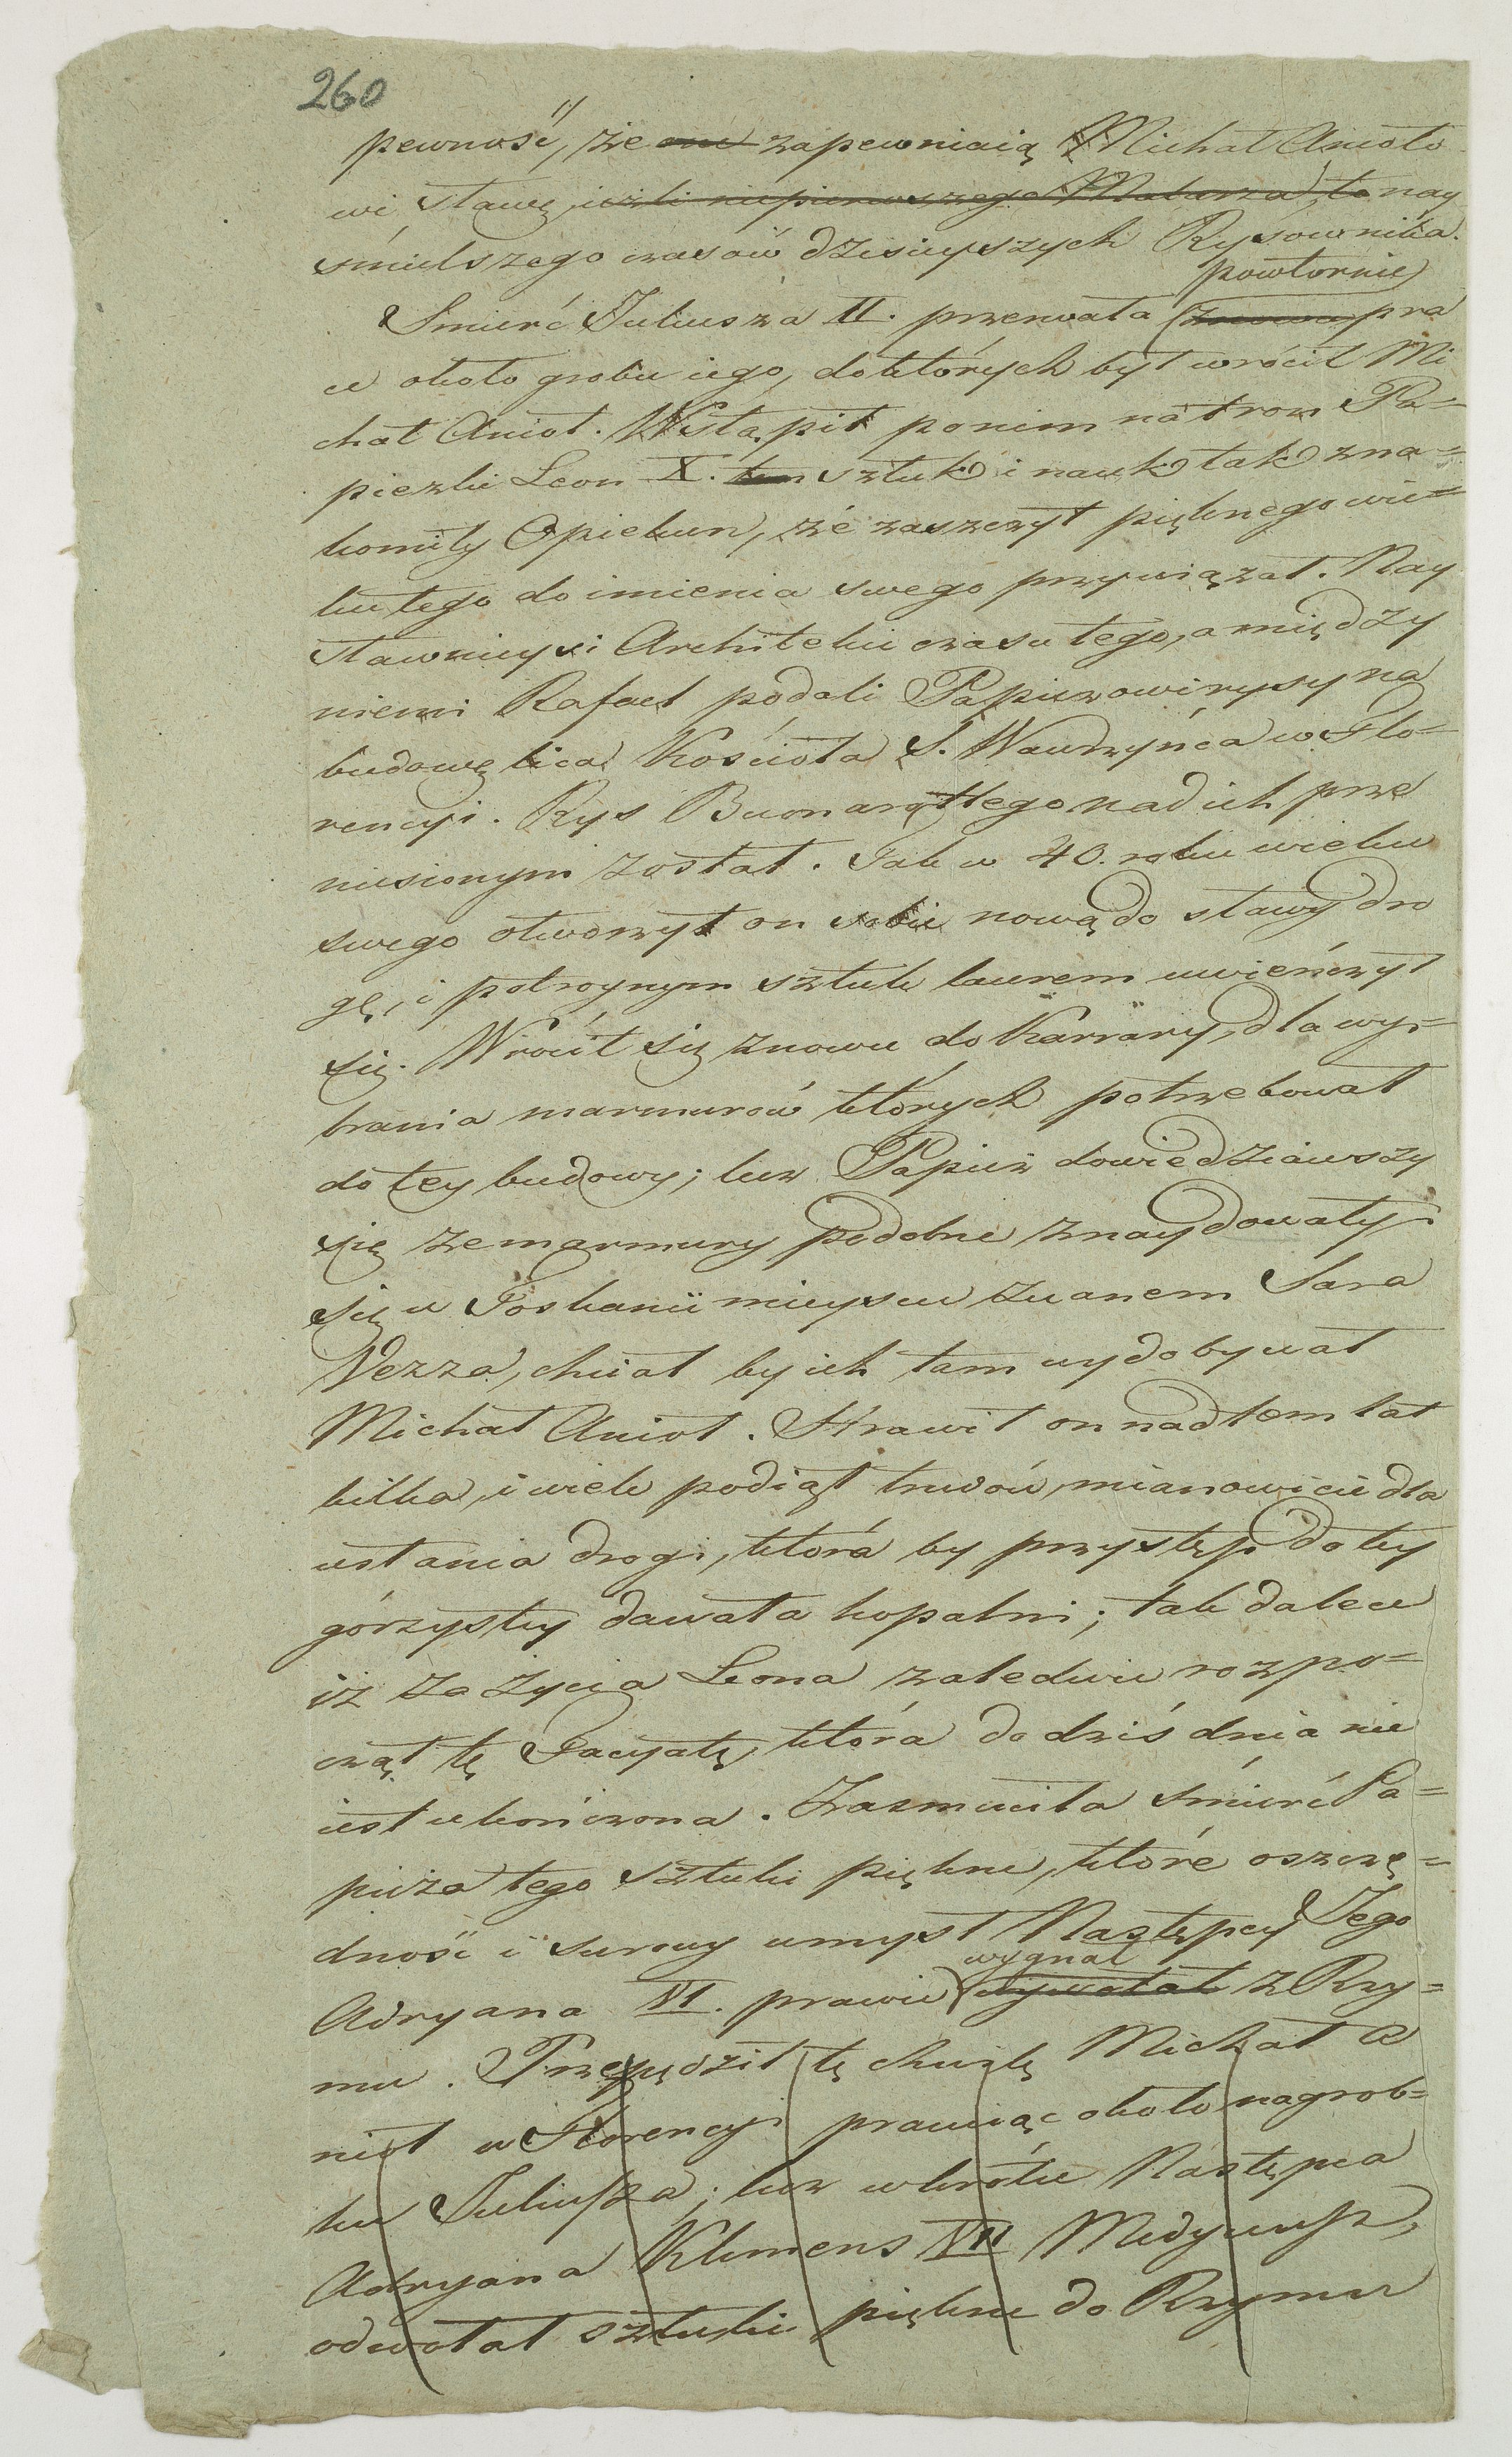 260
pewność, że one zapewniaią Michał Anioło
wi sławę, ieżli niepierwszego Malarza, to nay
śmielszego czasów dzisieyszych Rysownika.
powtornie
Smierć Juliusza II. przerwała znowu pra
ce około grobu iego, do których był wrócił Mi
chał Anioł. Wstąpił po nim na tron Pa=
piezki Leon X. ten sztuk i nauk tak zna=
komity Opiekun, że zaszczyt pięknego wie=
ku tego do imienia swego przywiązał. Nay
sławnieysi Architekci czasu tego, a między
niemi Rafael podali Papieżowi rysy na
budowę lica Kościoła S. Wawrzyńca w Flo=
rencyi. Rys Buonarottego nad ich prze
niesionym został. Tak w 40. roku wieku
swego otworzył on sobie nową do sławy dro
gę, i potroynym sztuk laurem uwieńczył
się. Wrócił się znowu do Karrary, dla wy=
brania marmurów których potrzebował
do tey budowy; lecz Papież dowiedziawszy
się że marmury podobne znaydowały
się w Toskanii mieyscu zwanem Sara
Vezza, chciał by ich tam wydobywał
Michał Anioł. Strawił on nad tem lat
kilka, i wiele podiął trudów, mianowicie dla
usłania drogi, która by przystęp do tey
górzystey dawała kopalni; tak dalece
iż za życia Leona zaledwie rozpo=
czął tę Facyatę, która do dziś dnia nie
iest ukończona. Zasmuciła śmierć Pa=
pieża tego sztuki piękne, które oszczę=
dność i surowy umysł Następcy Jego
wygnał
Adryana VI. prawie wywołał z Rzy=
mu. Przepędził tę chwilę Michał A
nioł w Florencyi pracuiąc około nagrob=
ku Juliusza; lecz wkrótce Następca
Adryana Klemens VII Medyceusz,
odwołał sztuki piękne do Rzymu